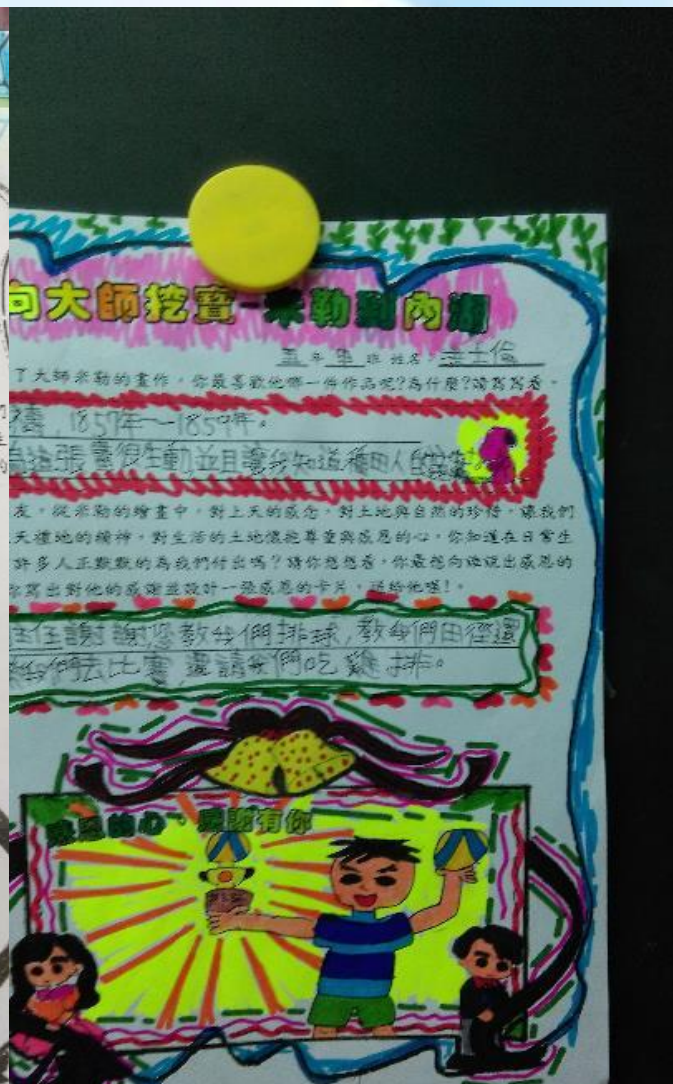 向大師挖寶-米勒到內湖
五年 班 姓名：
了大師米勒的畫作，你最喜歡他哪一件作品呢?為什麼?請寫寫看。
禱，1857年～1859年。
為這張畫很生動，並且讓我知道種田人的
友，從米勒的繪畫中，對上天的感念，對土地與自然的珍惜，讓我們
天禮地的精神，對生活的土地懷抱尊重與感恩的心。你知道在日常生
許多人正默默的為我們付出嗎？請你想想看，你最想向誰說出感恩的
你寫出對他的感謝並設計一張感恩的卡片，送給他喔！。
主任謝謝您教我們排球，教我們田徑還
我們去比賽 還請我們吃雞排。
感恩的心、感謝有你